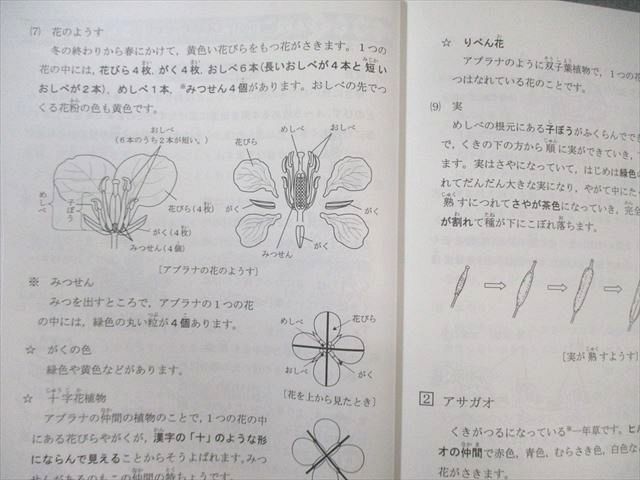 (7) 花のようす
冬の終わりから春にかけて，黄色い花びらをもつ花がさきます。1つの
花の中には，花びら4枚，がく4枚，おしべ6本(長いおしべが4本と短い
おしべが2本)，めしべ1本，※みつせん4個があります。おしべの先でつ
くる花粉の色も黄色です。
おしべ
(6本のうち2本が短い。)
めしべ
子ぼう
花びら(4枚)
がく(4枚)
みつせん(4個)
めしべ
おしべ
花びら
がく
がく
みつせん
[アブラナの花のようす]
※ みつせん
みつを出すところで，アブラナの1つの花
の中には，緑色の丸い粒が4個あります。
☆ がくの色
緑色や黄色などがあります。
☆ 十字花植物
アブラナの仲間の植物のことで，1つの花の中
にある花びらやがくが，漢字の「十」のような形
にならんで見えることからそうよばれます。みつ
せんがあるのもこの仲間の特ちょうです。
めしべ
花びら
おしべ
がく
[花を上から見たとき]
☆ りべん花
アブラナのように双子葉植物で，1つ
つはなれている花のことです。
(9) 実
めしべの根元にある子ぼうがふくらんででき
で，くきの下の方から順に実ができていき，
ます。実はさやになっていて，はじめは緑色
れてだんだん大きな実になり，やがて中にた
熟すにつれてさやが茶色になっていき，完全
が割れて種が下にこぼれ落ちます。
[実が熟すようす]
2 アサガオ
くきがつるになっている※一年草です。ヒル
オの仲間で赤色，青色，むらさき色，白色な
花がさきます。